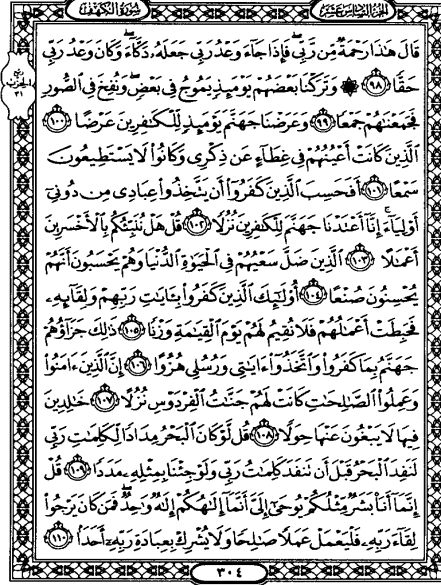 الجزء السادس عشر
سورة الكهف
قَالَ هَٰذَا رَحْمَةٌ مِّن رَّبِّي فَإِذَا جَآءَ وَعْدُ رَبِّي جَعَلَهُۥ دَكَّآءَ وَكَانَ وَعْدُ رَبِّي
حَقًّا ٩٨ ۞ وَتَرَكْنَا بَعْضَهُمْ يَوْمَئِذٍ يَمُوجُ فِي بَعْضٍ وَنُفِخَ فِي الصُّورِ
ربع
الحزب
٣١
فَجَمَعْنَٰهُمْ جَمْعًا ٩٩ وَعَرَضْنَا جَهَنَّمَ يَوْمَئِذٍ لِّلْكَٰفِرِينَ عَرْضًا ١٠٠
الَّذِينَ كَانَتْ أَعْيُنُهُمْ فِي غِطَآءٍ عَن ذِكْرِي وَكَانُوا۟ لَا يَسْتَطِيعُونَ
سَمْعًا ١٠١ أَفَحَسِبَ الَّذِينَ كَفَرُوٓا۟ أَن يَتَّخِذُوا۟ عِبَادِي مِن دُونِيٓ
أَوْلِيَآءَ إِنَّآ أَعْتَدْنَا جَهَنَّمَ لِلْكَٰفِرِينَ نُزُلًا ١٠٢ قُلْ هَلْ نُنَبِّئُكُم بِالْأَخْسَرِينَ
أَعْمَٰلًا ١٠٣ الَّذِينَ ضَلَّ سَعْيُهُمْ فِي الْحَيَوٰةِ الدُّنْيَا وَهُمْ يَحْسَبُونَ أَنَّهُمْ
يُحْسِنُونَ صُنْعًا ١٠٤ أُو۟لَٰٓئِكَ الَّذِينَ كَفَرُوا۟ بِـَٔايَٰتِ رَبِّهِمْ وَلِقَآئِهِۦ
فَحَبِطَتْ أَعْمَٰلُهُمْ فَلَا نُقِيمُ لَهُمْ يَوْمَ الْقِيَٰمَةِ وَزْنًا ١٠٥ ذَٰلِكَ جَزَآؤُهُمْ
جَهَنَّمُ بِمَا كَفَرُوا۟ وَاتَّخَذُوٓا۟ ءَايَٰتِي وَرُسُلِي هُزُوًا ١٠٦ إِنَّ الَّذِينَ ءَامَنُوا۟
وَعَمِلُوا۟ الصَّٰلِحَٰتِ كَانَتْ لَهُمْ جَنَّٰتُ الْفِرْدَوْسِ نُزُلًا ١٠٧ خَٰلِدِينَ
فِيهَا لَا يَبْغُونَ عَنْهَا حِوَلًا ١٠٨ قُل لَّوْ كَانَ الْبَحْرُ مِدَادًا لِّكَلِمَٰتِ رَبِّي
لَنَفِدَ الْبَحْرُ قَبْلَ أَن تَنفَدَ كَلِمَٰتُ رَبِّي وَلَوْ جِئْنَا بِمِثْلِهِۦ مَدَدًا ١٠٩ قُلْ
إِنَّمَآ أَنَا۠ بَشَرٌ مِّثْلُكُمْ يُوحَىٰٓ إِلَيَّ أَنَّمَآ إِلَٰهُكُمْ إِلَٰهٌ وَٰحِدٌ فَمَن كَانَ يَرْجُوا۟
لِقَآءَ رَبِّهِۦ فَلْيَعْمَلْ عَمَلًا صَٰلِحًا وَلَا يُشْرِكْ بِعِبَادَةِ رَبِّهِۦٓ أَحَدًۢا ١١٠
٣٠٤